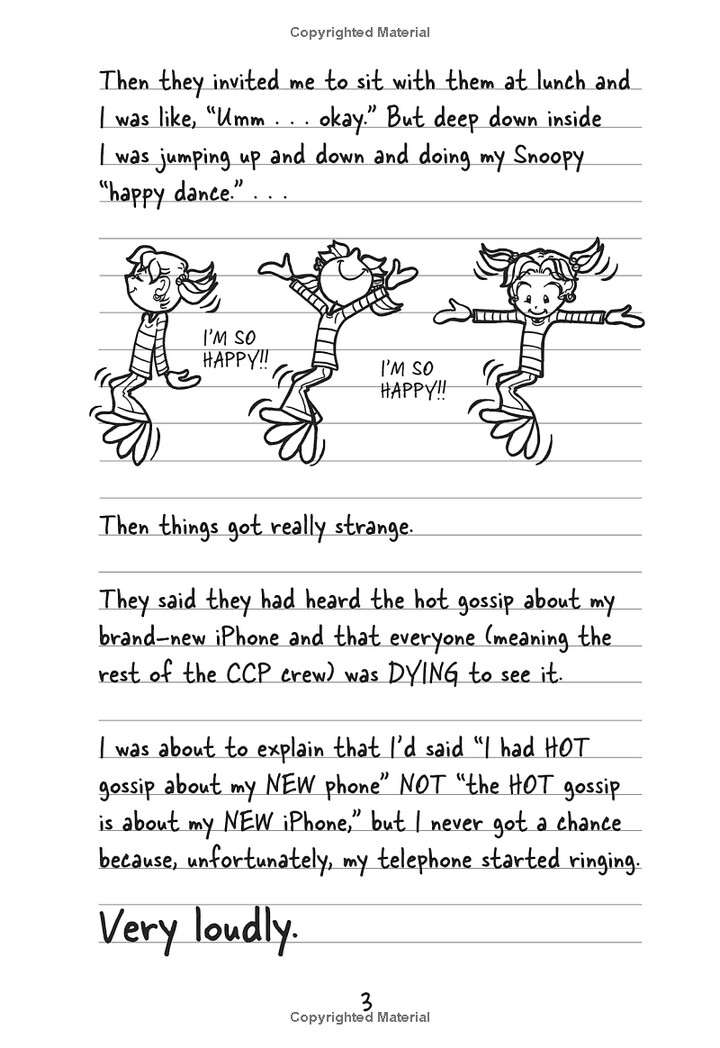 Copyrighted Material
Then they invited me to sit with them at lunch and
I was like, “Umm . . . okay.” But deep down inside
I was jumping up and down and doing my Snoopy
“happy dance.” . . .
I'M SO
HAPPY!!
I'M SO
HAPPY!!
Then things got really strange.
They said they had heard the hot gossip about my
brand–new iPhone and that everyone (meaning the
rest of the CCP crew) was DYING to see it.
I was about to explain that I'd said “I had HOT
gossip about my NEW phone” NOT “the HOT gossip
is about my NEW iPhone,” but I never got a chance
because, unfortunately, my telephone started ringing.
Very loudly.
3
Copyrighted Material